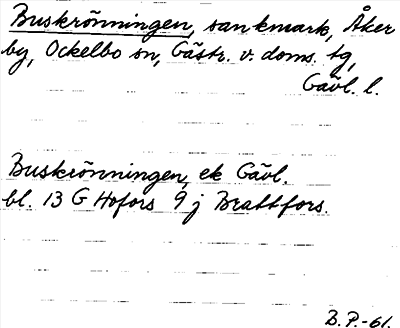 Buskrönningen, sankmark, Åker
by, Ockelbo sn, Gästr. v. doms. tg,
Gävl. l.
Buskrönningen, ek Gävl.
bl. 13 G Hofors 9 j Brattfors.
B. P.-61.